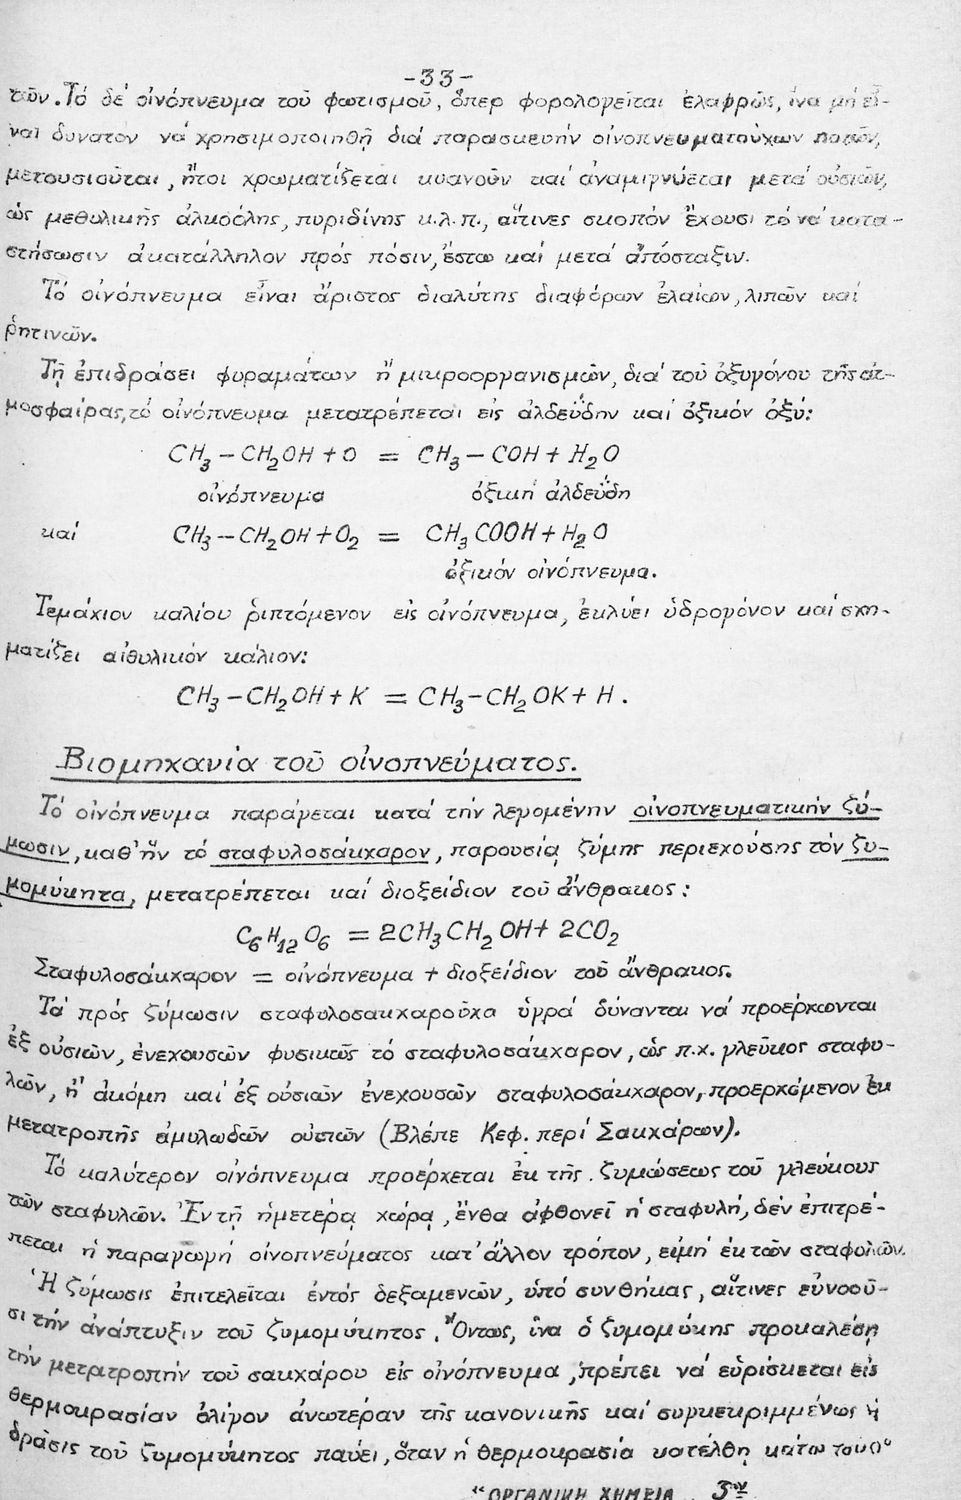 -33-
τῶν. Τό δέ οἰνόπνευμα τοῦ φωτισμοῦ, ὅπερ φορολογεῖται ἐλαφρῶς, ἵνα μή εἶ-
ναι δυνατόν νά χρησιμοποιηθῇ διά παρασκευήν οἰνοπνευματούχων ποτῶν,
μετουσιοῦται, ἤτοι χρωματίζεται κυανοῦν καί ἀναμιγνύεται μετά οὐσιῶν,
ὡς μεθυλικῆς ἀλκοόλης, πυριδίνης κ.λ.π., αἵτινες σκοπόν ἔχουσι τό νά κατα-
στήσωσιν ἀκατάλληλον πρός πόσιν, ἔστω καί μετά ἀπόσταξιν.
Τό οἰνόπνευμα εἶναι ἄριστος διαλύτης διαφόρων ἐλαίων, λιπῶν καί
ῥητινῶν.
Τῇ ἐπιδράσει φυραμάτων ἤ μικροοργανισμῶν, διά τοῦ ὀξυγόνου τῆς ἀτ-
μοσφαίρας, τό οἰνόπνευμα μετατρέπεται εἰς ἀλδεΰδην καί ὀξικόν ὀξύ:
CH₃ – CH₂OH + O = CH₃ – COH + H₂O
οἰνόπνευμα ὀξική ἀλδεΰδη
καί CH₃ – CH₂OH + O₂ = CH₃COOH + H₂O
ὀξικόν οἰνόπνευμα.
Τεμάχιον καλίου ῥιπτόμενον εἰς οἰνόπνευμα, ἐκλύει ὑδρογόνον καί σχη-
ματίζει αἰθυλικόν κάλιον:
CH₃ – CH₂OH + K = CH₃ – CH₂OK + H.
Βιομηχανία τοῦ οἰνοπνεύματος.
Τό οἰνόπνευμα παράγεται κατά τήν λεγομένην οἰνοπνευματικήν ζύ-
μωσιν, καθ' ἥν τό σταφυλοσάκχαρον, παρουσίᾳ ζύμης περιεχούσης τόν ζυ-
μομύκητα, μετατρέπεται καί διοξείδιον τοῦ ἄνθρακος:
C₆H₁₂O₆ = 2CH₃CH₂OH + 2CO₂
Σταφυλοσάκχαρον = οἰνόπνευμα + διοξείδιον τοῦ ἄνθρακος.
Τά πρός ζύμωσιν σταφυλοσακχαροῦχα ὑγρά δύνανται νά προέρχωνται
ἐξ οὐσιῶν, ἐνεχουσῶν φυσικῶς τό σταφυλοσάκχαρον, ὡς π.χ. γλεῦκος σταφυ-
λῶν, ἤ ἀκόμη καί ἐξ οὐσιῶν ἐνεχουσῶν σταφυλοσάκχαρον, προερχόμενον ἐκ
μετατροπῆς ἀμυλωδῶν οὐσιῶν (Βλέπε Κεφ. περί Σακχάρων).
Τό καλύτερον οἰνόπνευμα προέρχεται ἐκ τῆς ζυμώσεως τοῦ γλεύκους
τῶν σταφυλῶν. Ἐν τῇ ἡμετέρᾳ χώρᾳ, ἔνθα ἀφθονεῖ ἡ σταφυλή, δέν ἐπιτρέ-
πεται ἡ παραγωγή οἰνοπνεύματος κατ' ἄλλον τρόπον, εἰμή ἐκ τῶν σταφυλῶν.
Ἡ ζύμωσις ἐπιτελεῖται ἐντός δεξαμενῶν, ὑπό συνθήκας, αἵτινες εὐνοοῦ-
σι τήν ἀνάπτυξιν τοῦ ζυμομύκητος. Ὄντως, ἵνα ὁ ζυμομύκης προκαλέσῃ
τήν μετατροπήν τοῦ σακχάρου εἰς οἰνόπνευμα, πρέπει νά εὑρίσκεται εἰς
θερμοκρασίαν ὀλίγον ἀνωτέραν τῆς κανονικῆς καί συγκεκριμμένως ἡ
δρᾶσις τοῦ ζυμομύκητος παύει, ὅταν ἡ θερμοκρασία κατέλθῃ κάτω τοῦ 0°
"ΟΡΓΑΝΙΚΗ ΧΗΜΕΙΑ 3ον